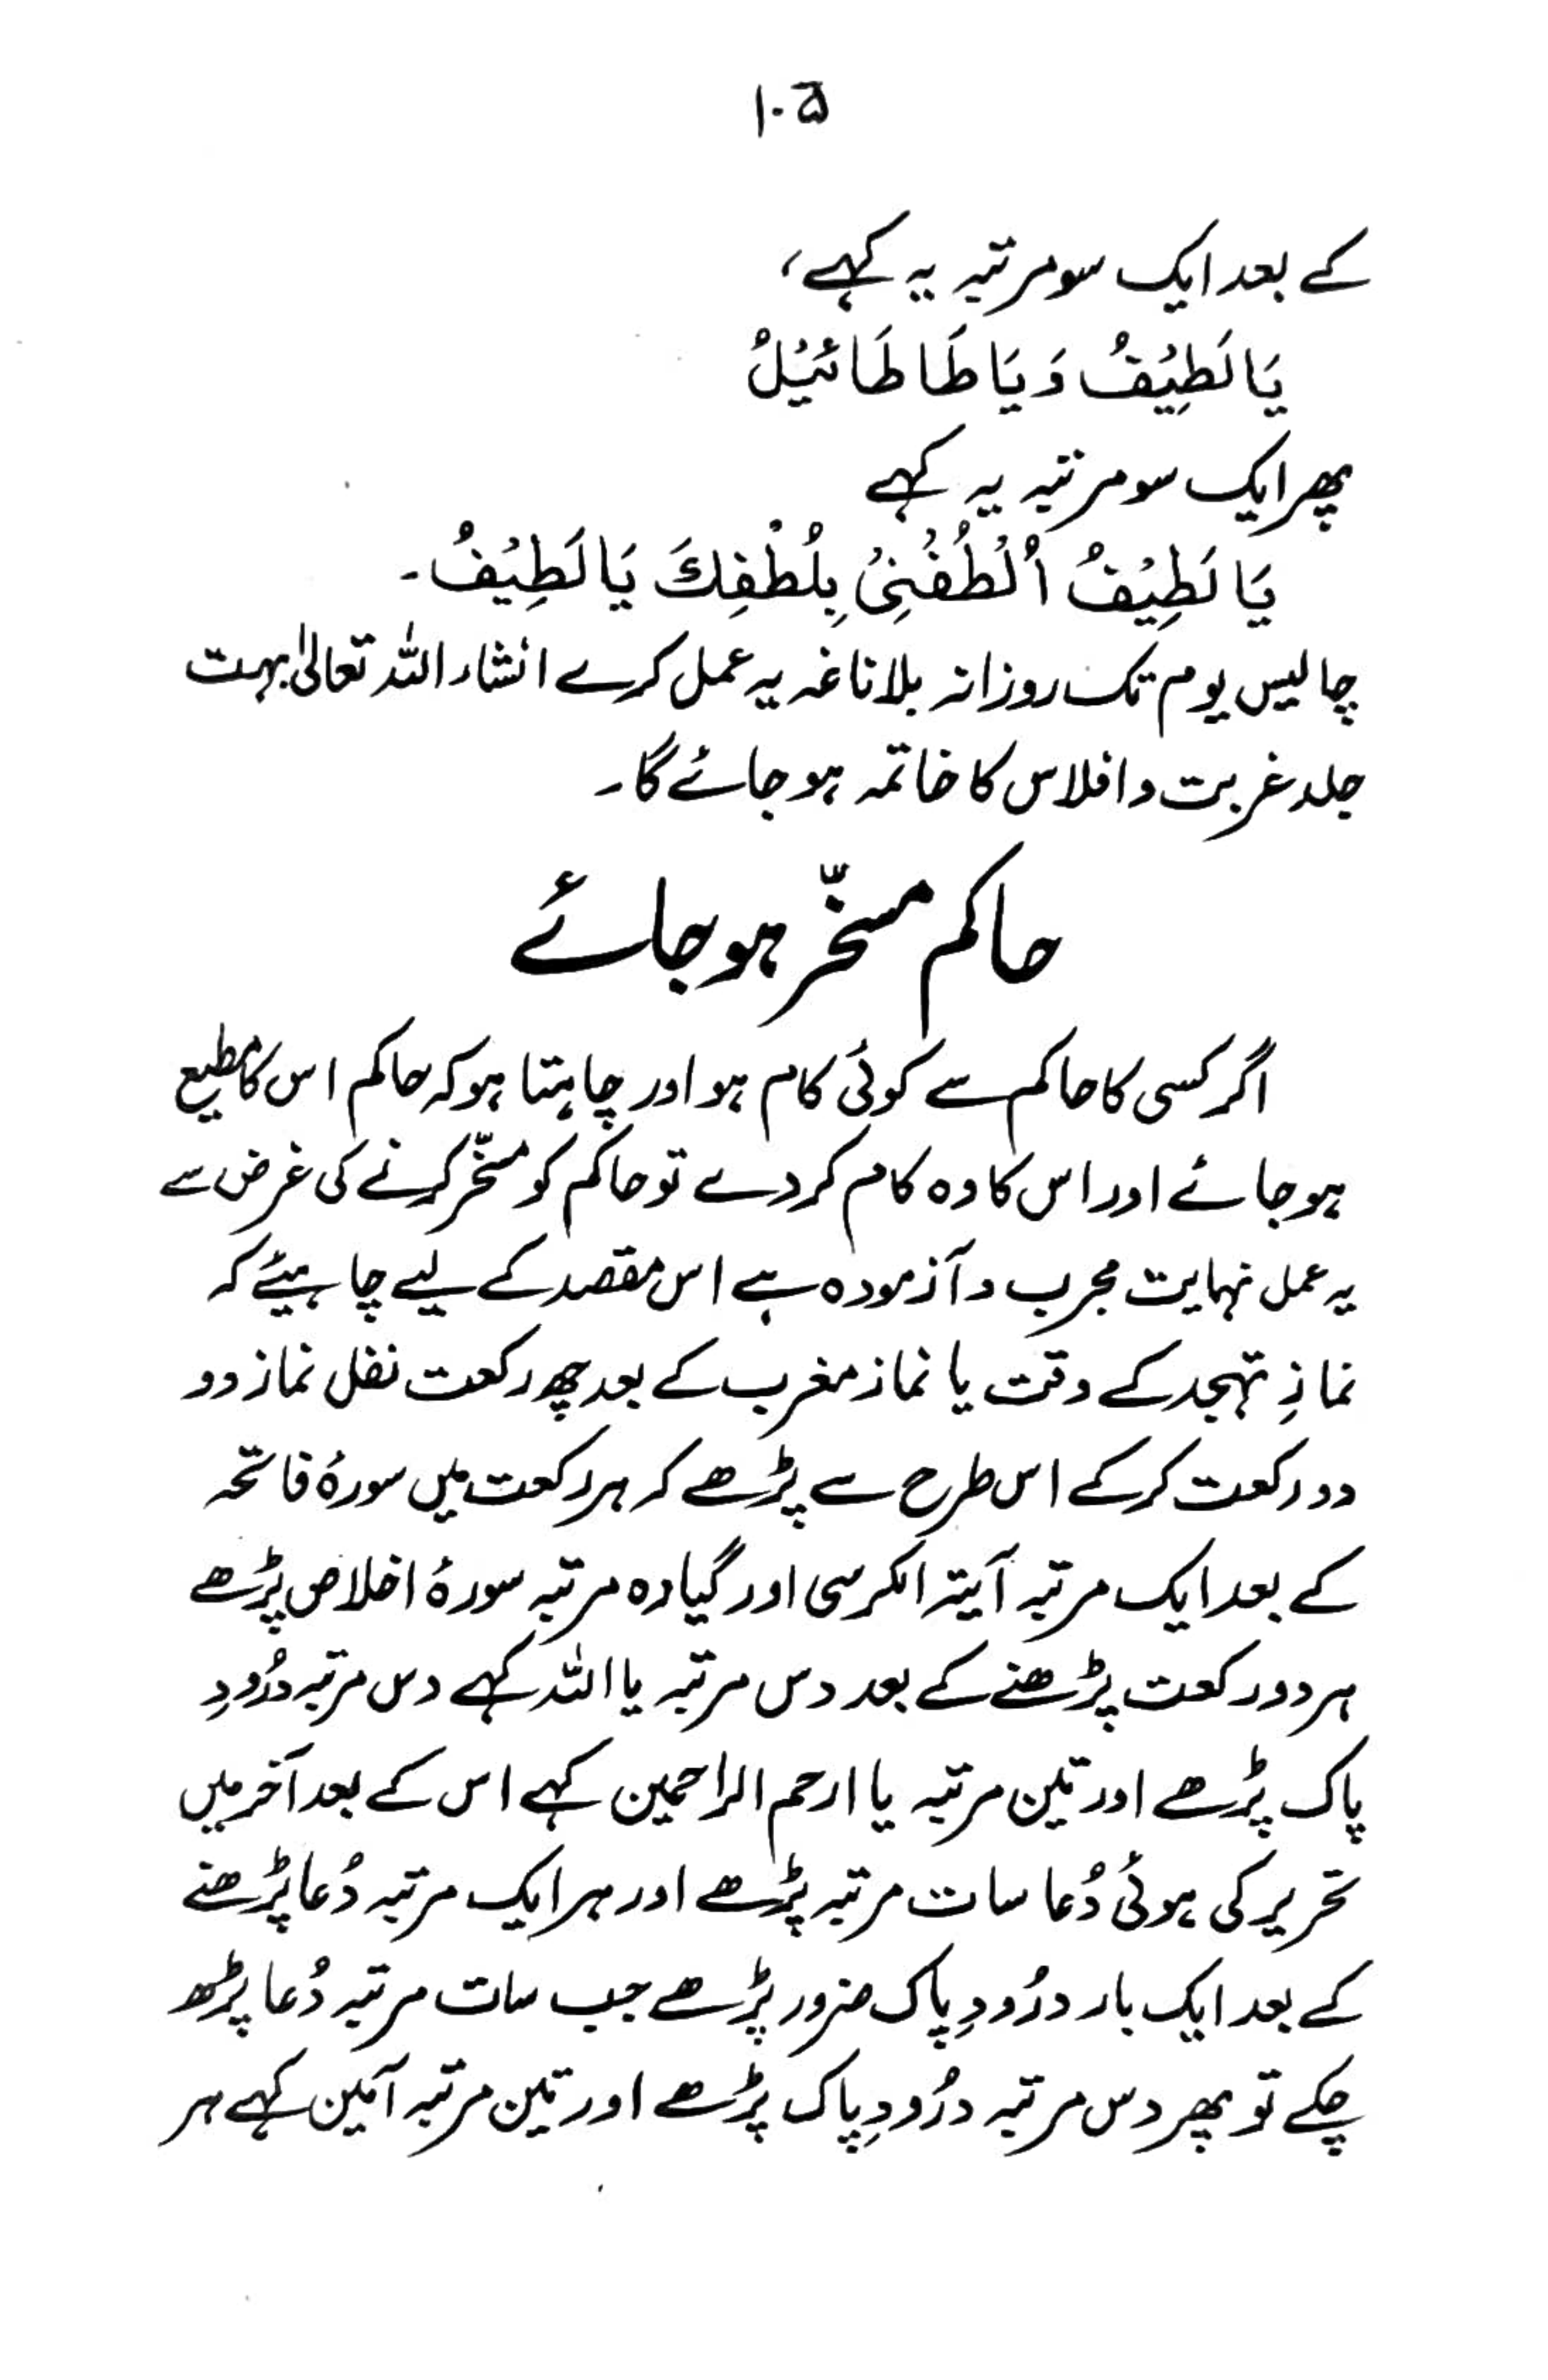 ۱۰۵
کے بعد ایک سو مرتبہ یہ کہے،
یَا لَطِیْفُ وَ یَا طَا طَائِیْلُ
پھر ایک سو مرتبہ یہ کہے
یَا لَطِیْفُ اُلْطُفْنِیْ بِلُطْفِكَ یَا لَطِیْفُ۔
چالیس یوم تک روزانہ بلاناغہ یہ عمل کرے انشاء اللہ تعالیٰ بہت
جلد غربت و افلاس کا خاتمہ ہو جائے گا۔
حاکم مسخّر ہو جائے
اگر کسی کا حاکم سے کوئی کام ہو اور چاہتا ہو کہ حاکم اس کا مطیع
ہو جائے اور اس کا وہ کام کر دے تو حاکم کو مسخّر کرنے کی غرض سے
یہ عمل نہایت مجرب و آزمودہ ہے اس مقصد کے لیے چاہیئے کہ
نمازِ تہجد کے وقت یا نماز مغرب کے بعد چھ رکعت نفل نماز دو
دو رکعت کر کے اس طرح سے پڑھے کہ ہر رکعت میں سورۂ فاتحہ
کے بعد ایک مرتبہ آیتہ الکرسی اور گیارہ مرتبہ سورۂ اخلاص پڑھے
ہر دو رکعت پڑھنے کے بعد دس مرتبہ یا اللہ کہے دس مرتبہ دُرُودِ
پاک پڑھے اور تین مرتبہ یا ارحم الراحمین کہے اس کے بعد آخر میں
تحریر کی ہوئی دُعا سات مرتبہ پڑھے اور ہر ایک مرتبہ دُعا پڑھنے
کے بعد ایک بار درُودِ پاک ضرور پڑھے جب سات مرتبہ دُعا پڑھ
چکے تو پھر دس مرتبہ درُودِ پاک پڑھے اور تین مرتبہ آمین کہے ہر